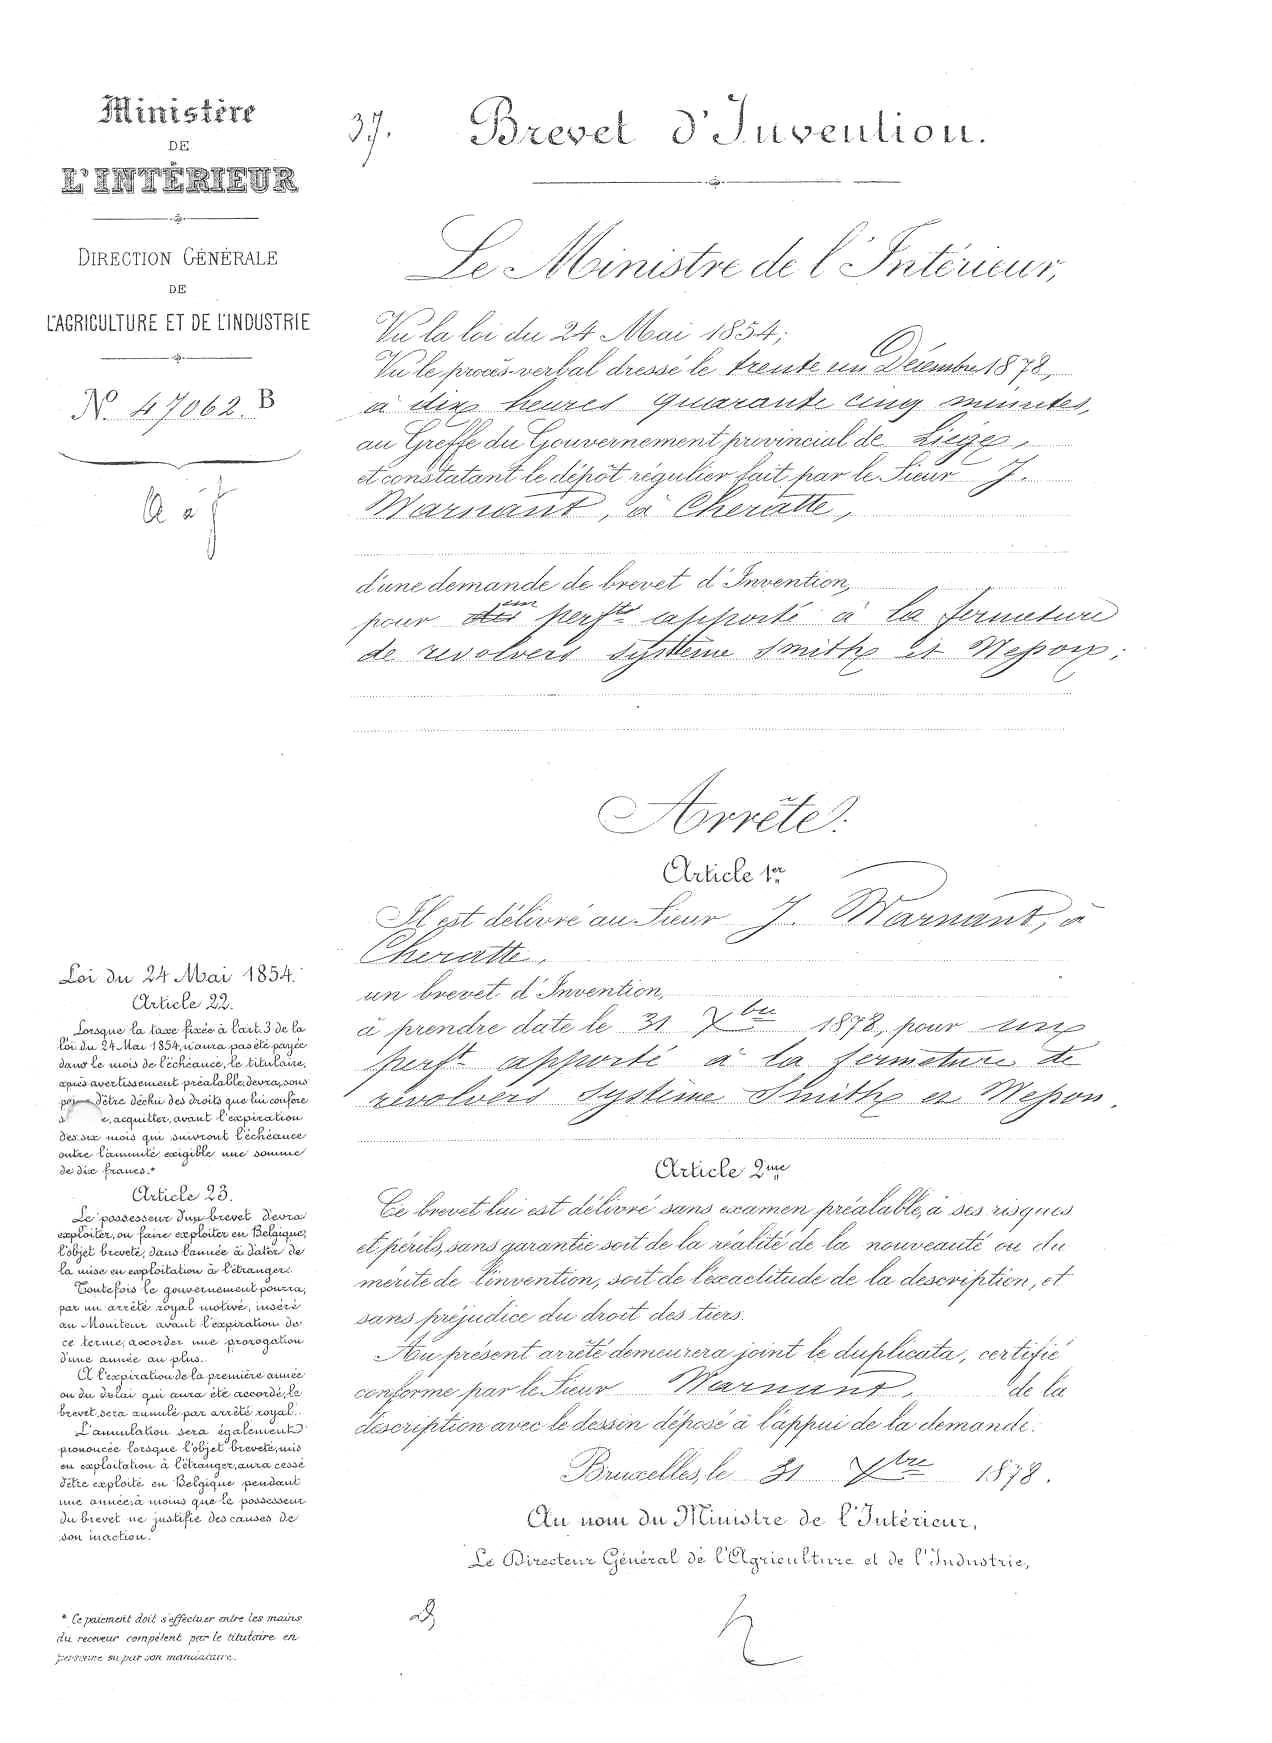 Ministère
DE
L'INTÉRIEUR
DIRECTION GÉNÉRALE
DE
L'AGRICULTURE ET DE L'INDUSTRIE
N.º 47062. B
37.
Brevet d'Invention.
Le Ministre de l'Intérieur,
Vu la loi du 24 Mai 1854;
Vu le procès-verbal dressé le trente un Décembre 1878,
à dix heures quarante cinq minutes,
au Greffe du Gouvernement provincial de Liège,
et constatant le dépôt régulier fait par le Sieur J.
Warnant, à Cheratte,
d'une demande de brevet d'Invention,
pour un perf.t apporté à la fermeture
de revolvers système Smith et Wepon;
Arrête:
Article 1er
Il est délivré au Sieur J. Warnant, à
Cheratte,
un brevet d'Invention,
à prendre date le 31 Xbre 1878, pour un
perf.t apporté à la fermeture de
revolvers système Smith et Wepon.
Article 2me
Ce brevet lui est délivré sans examen préalable, à ses risques
et périls, sans garantie soit de la réalité de la nouveauté ou du
mérite de l'invention, soit de l'exactitude de la description, et
sans préjudice du droit des tiers.
Au présent arrêté demeurera joint le duplicata, certifié
conforme par le Sieur Warnant, de la
description avec le dessin déposé à l'appui de la demande.
Bruxelles, le 31 Xbre 1878.
Au nom du Ministre de l'Intérieur,
Le Directeur Général de l'Agriculture et de l'Industrie,
Loi du 24 Mai 1854.
Article 22.
Lorsque la taxe fixée à l'art. 3 de la
loi du 24 Mai 1854, n'aura pas été payée
dans le mois de l'échéance, le titulaire,
après avertissement préalable, devra, sous
d'être déchu des droits que lui confère
acquitter, avant l'expiration
des six mois qui suivront l'échéance
outre l'annuité exigible une somme
de dix francs.*
Article 23.
Le possesseur d'un brevet devra
exploiter, ou faire exploiter en Belgique,
l'objet breveté, dans l'année à dater de
la mise en exploitation à l'étranger.
Toutefois le gouvernement pourra,
par un arrêté royal motivé, inséré
au Moniteur avant l'expiration de
ce terme, accorder une prorogation
d'une année au plus.
A l'expiration de la première année
ou du délai qui aura été accordé, le
brevet sera annulé par arrêté royal.
L'annulation sera également
prononcée lorsque l'objet breveté, mis
en exploitation à l'étranger, aura cessé
d'être exploité en Belgique pendant
une année, à moins que le possesseur
du brevet ne justifie des causes de
son inaction.
* Ce paiement doit s'effectuer entre les mains
du receveur compétent par le titulaire en
personne ou par son mandataire.